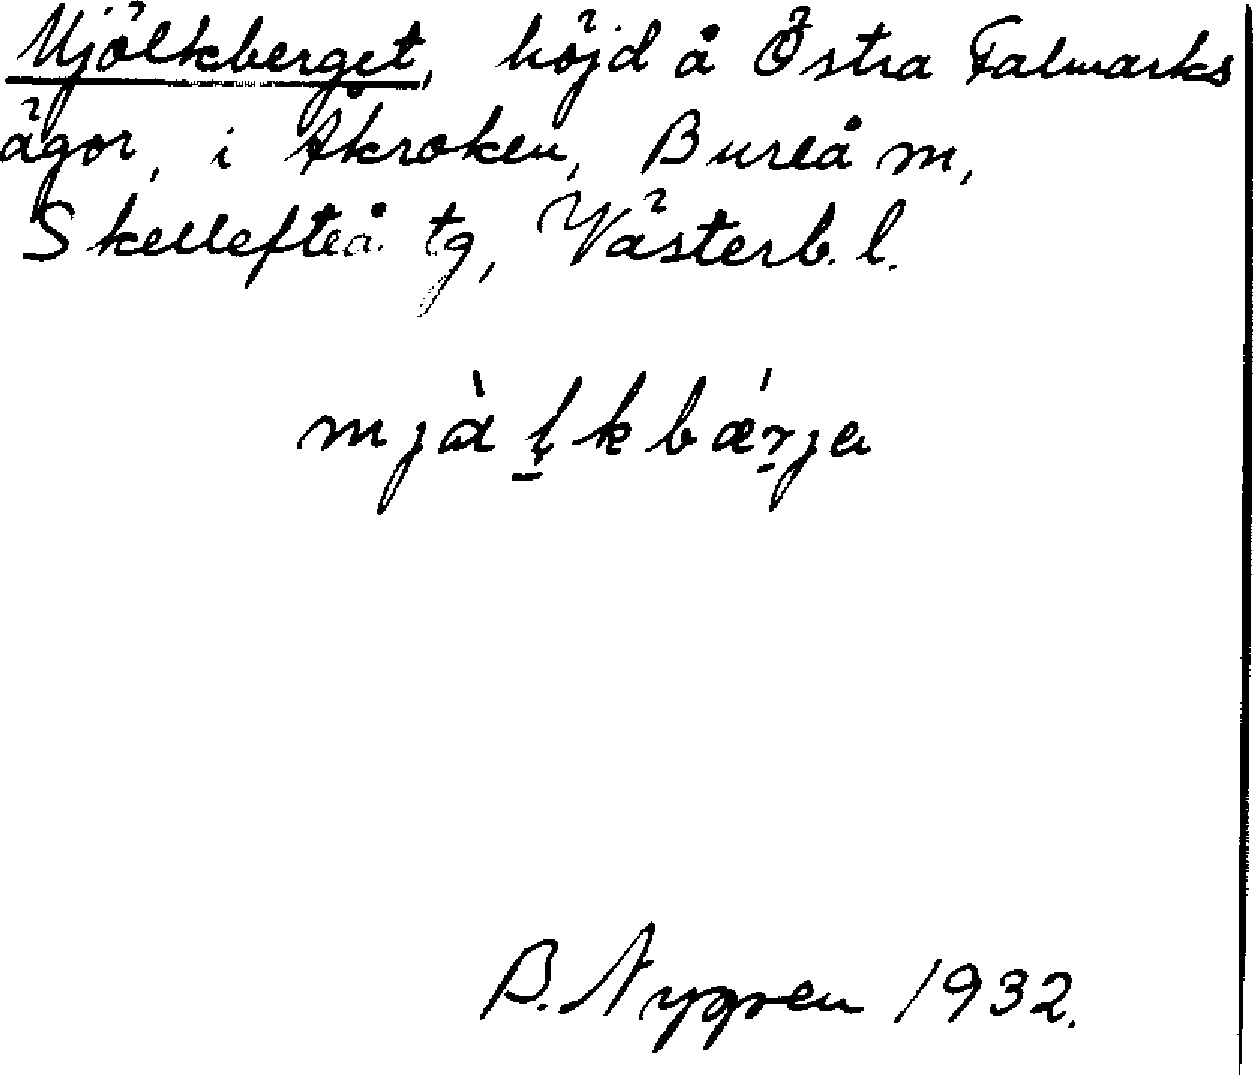 Mjölkberget, höjd å Östra Falmarks
ägor, i Åkroken, Bureå m,
Skellefteå tg, Västerb. l.
mjὰļkbǽr̨ja
B. Nygren 1932.